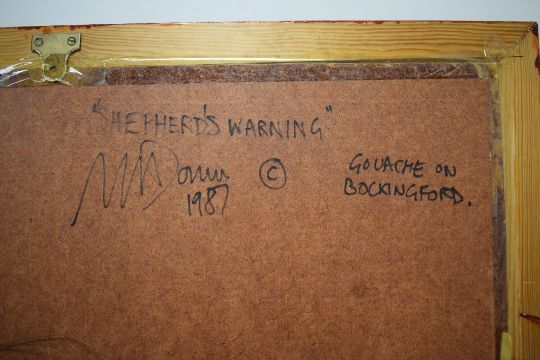 "SHEPHERD'S WARNING"
©
1987
GOUACHE ON
BOCKINGFORD.